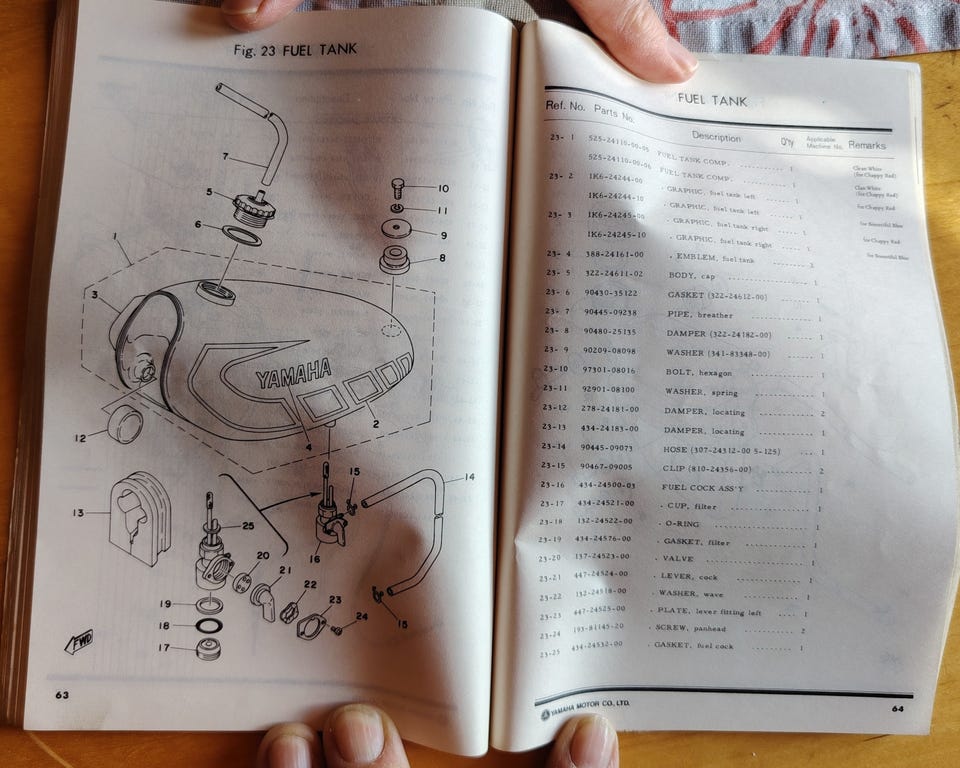 Fig. 23 FUEL TANK
7
5
6
10
11
9
8
1
3
YAMAHA
2
4
12
13
25
15
14
16
20
21
22
23
24
15
19
18
17
FWD
63
FUEL TANK
Ref. No. Parts No. Description Q'ty Applicable Machine No. Remarks
23- 1 525-24110-00-05 FUEL TANK COMP. 1 Clean White (for Chappy Red)
525-24110-00-06 FUEL TANK COMP. 1 Clan White (for Chappy Red)
23- 2 1K6-24244-00 . GRAPHIC, fuel tank left 1 for Chappy Red
1K6-24244-10 . GRAPHIC, fuel tank left 1 for Beautiful Blue
23- 3 1K6-24245-00 . GRAPHIC, fuel tank right 1 for Chappy Red
1K6-24245-10 . GRAPHIC, fuel tank right 1 for Beautiful Blue
23- 4 388-24161-00 . EMBLEM, fuel tank 2
23- 5 322-24611-02 BODY, cap 1
23- 6 90430-35122 GASKET (322-24612-00) 1
23- 7 90445-09238 PIPE, breather 1
23- 8 90480-25135 DAMPER (322-24182-00) 1
23- 9 90209-08098 WASHER (341-83348-00) 1
23-10 97301-08016 BOLT, hexagon 1
23-11 92901-08100 WASHER, spring 1
23-12 278-24181-00 DAMPER, locating 2
23-13 434-24183-00 DAMPER, locating 1
23-14 90445-09073 HOSE (307-24312-00 S-125) 1
23-15 90467-09005 CLIP (810-24356-00) 2
23-16 434-24500-03 FUEL COCK ASS'Y 1
23-17 434-24521-00 . CUP, filter 1
23-18 132-24522-00 . O-RING 1
23-19 434-24576-00 . GASKET, filter 1
23-20 137-24523-00 . VALVE 1
23-21 447-24524-00 . LEVER, cock 1
23-22 132-24518-00 . WASHER, wave 1
23-23 447-24525-00 . PLATE, lever fitting left 1
23-24 193-81145-20 . SCREW, panhead 2
23-25 434-24532-00 . GASKET, fuel cock 1
YAMAHA MOTOR CO., LTD.
64